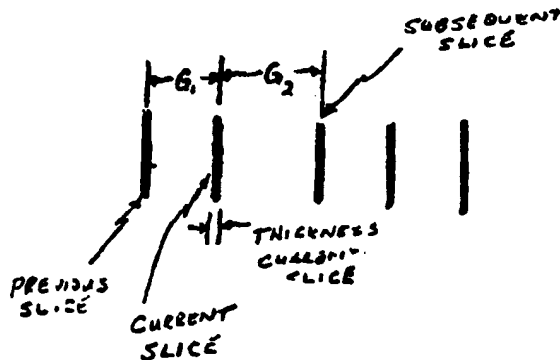 SUBSEQUENT
SLICE
G₁
G₂
THICKNESS
CURRENT
SLICE
PREVIOUS
SLICE
CURRENT
SLICE